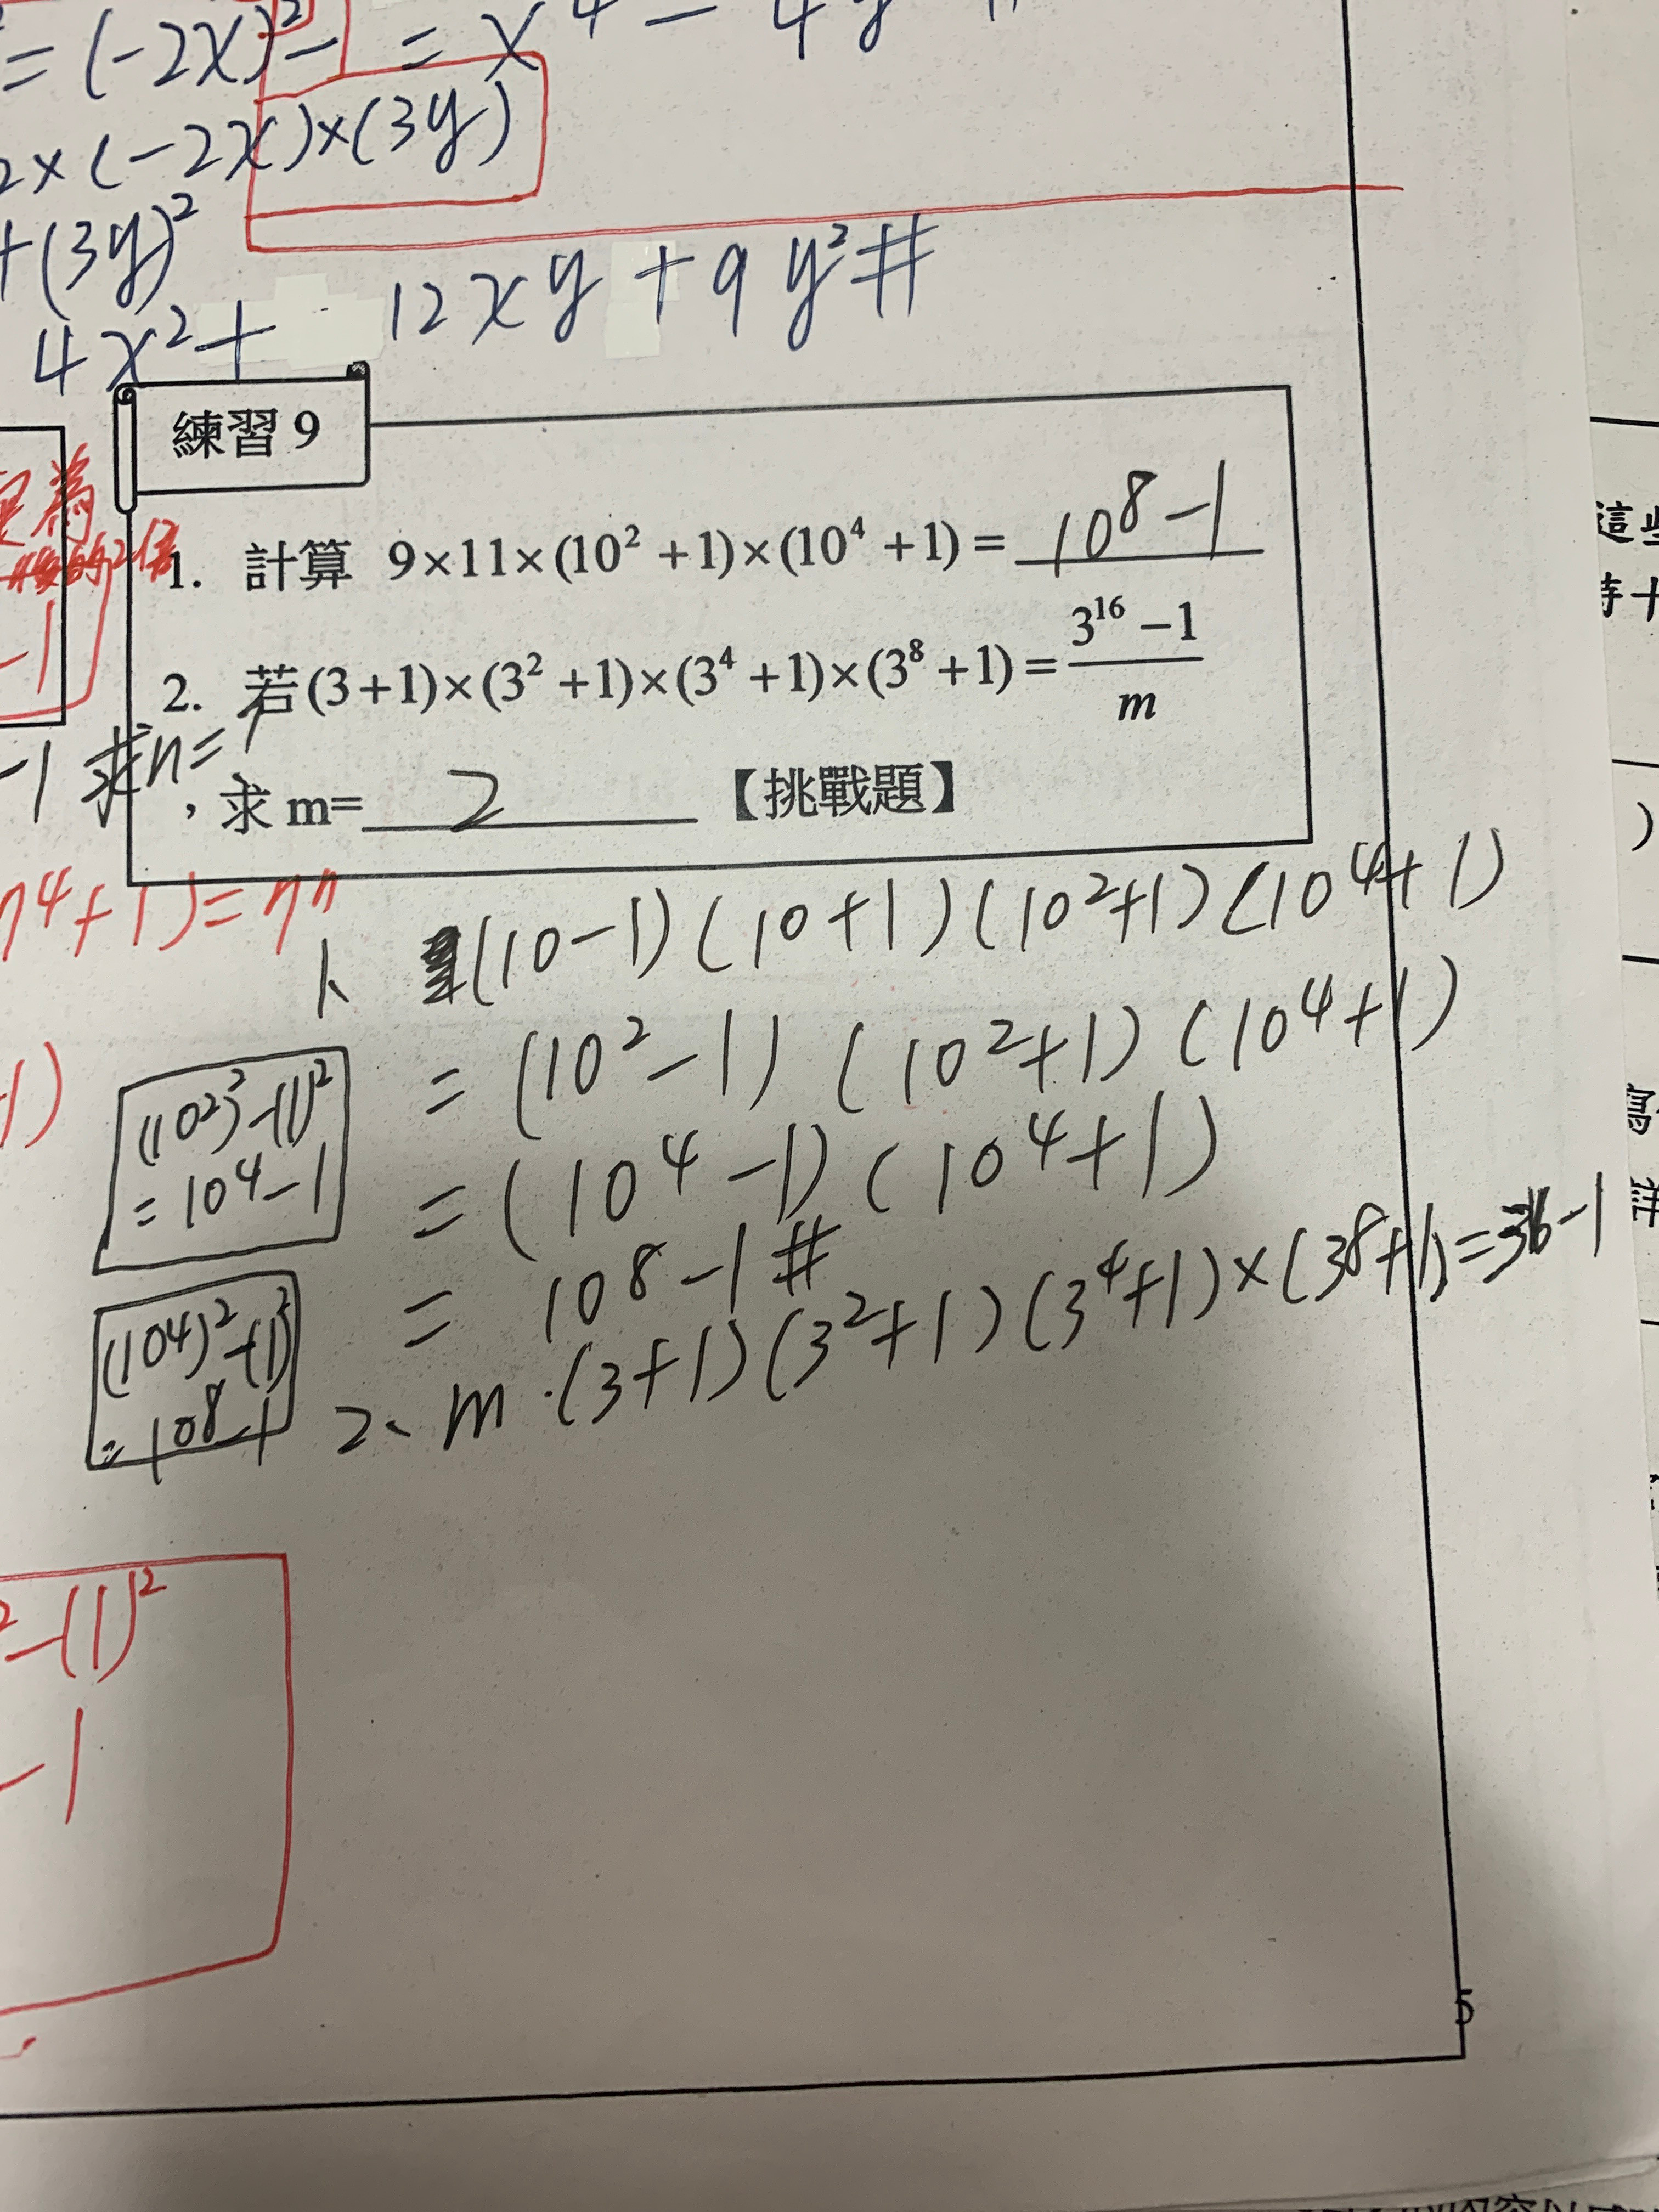 = (-2x)² - = x⁴ - 4y
2×(-2x)×(3y)
+(3y)²
4x²+ 12xy+9y²#
練習 9
1. 計算 9×11×(10²+1)×(10⁴+1)= 10⁸-1
2. 若(3+1)×(3²+1)×(3⁴+1)×(3⁸+1)= (3¹⁶-1)/m
-1 求n=?
,求 m= 2 【挑戰題】
7⁴+1)=7ⁿ
1、 (10-1)(10+1)(10²+1)(10⁴+1)
= (10²-1) (10²+1) (10⁴+1)
(10²)²-(1)²
= 10⁴-1
= (10⁴-1) (10⁴+1)
= 10⁸-1#
(10⁴)²-(1)²
= 10⁸-1
2、 m·(3+1)(3²+1)(3⁴+1)×(3⁸+1)=3¹⁶-1
-1)
²-(1)²
-1
5
這些
)